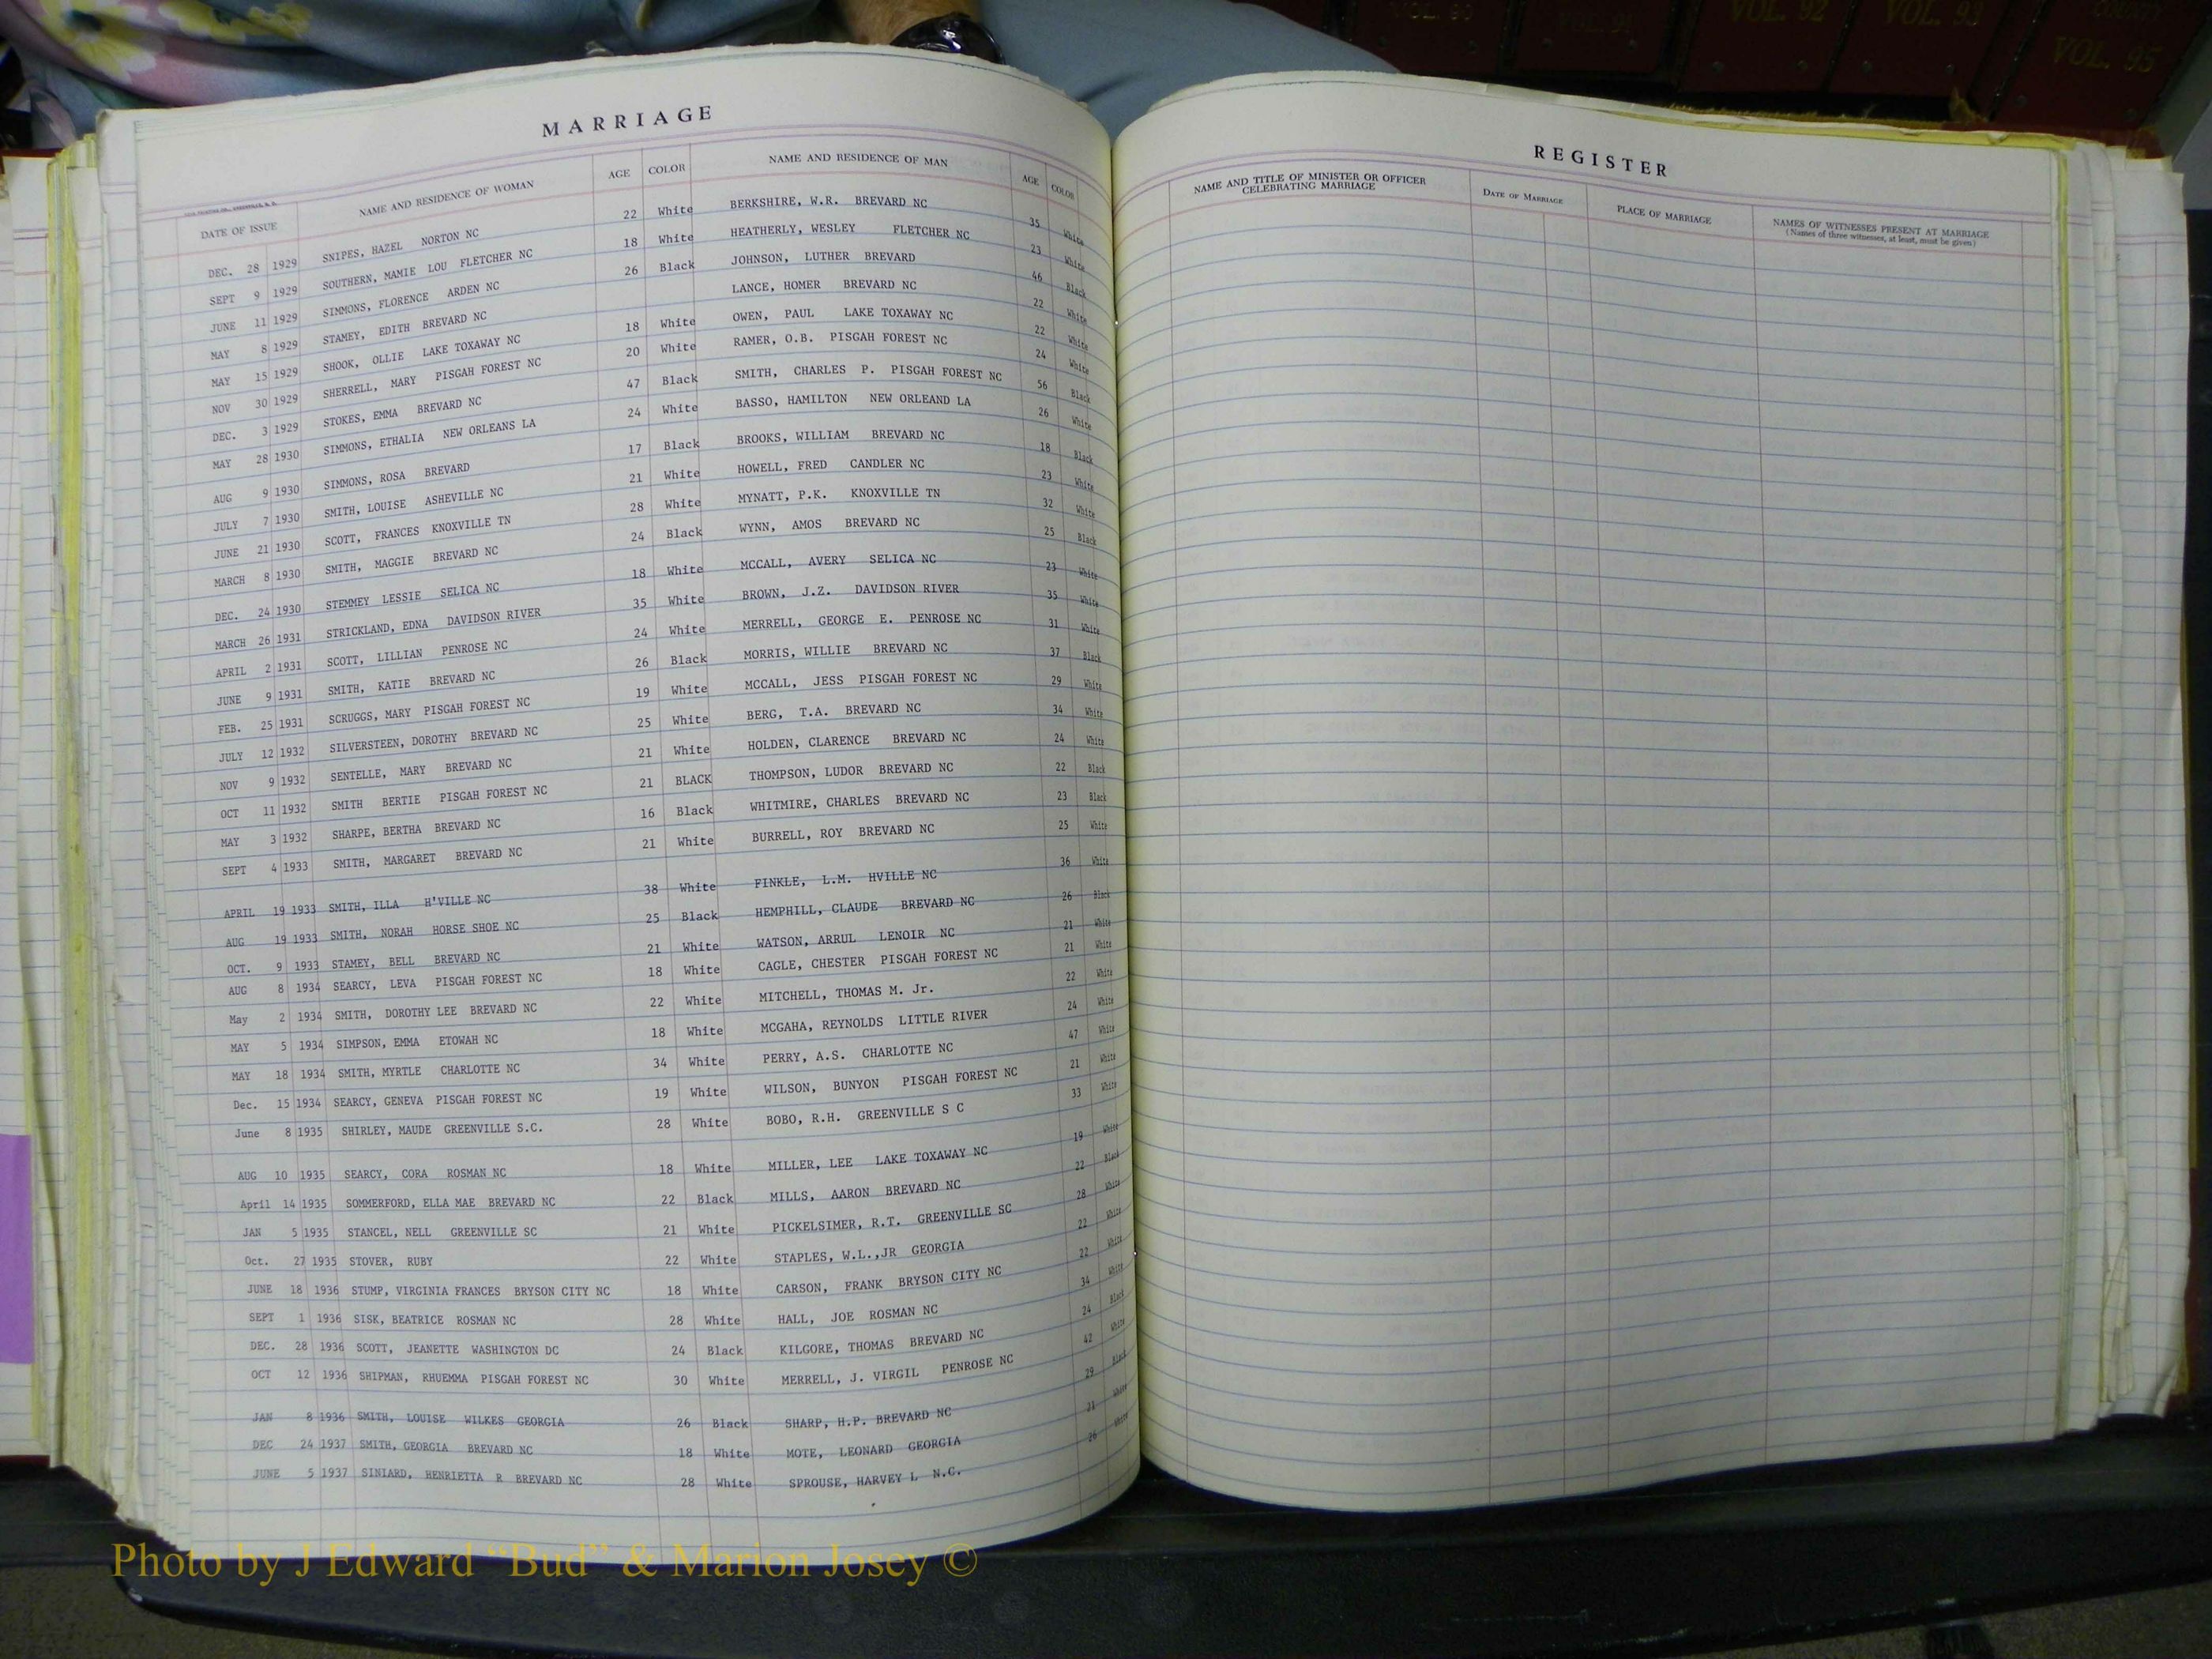 VOL. 90
VOL. 91
VOL. 92
VOL. 93
COUNTY
VOL. 95
MARRIAGE
DATE OF ISSUE NAME AND RESIDENCE OF WOMAN AGE COLOR NAME AND RESIDENCE OF MAN AGE COLOR
DEC. 28 1929 SNIPES, HAZEL NORTON NC 22 White BERKSHIRE, W.R. BREVARD NC 35 White
SEPT 9 1929 SOUTHERN, MAMIE LOU FLETCHER NC 18 White HEATHERLY, WESLEY FLETCHER NC 23 White
JUNE 11 1929 SIMMONS, FLORENCE ARDEN NC 26 Black JOHNSON, LUTHER BREVARD 46 Black
MAY 8 1929 STAMEY, EDITH BREVARD NC LANCE, HOMER BREVARD NC 22 White
MAY 15 1929 SHOOK, OLLIE LAKE TOXAWAY NC 18 White OWEN, PAUL LAKE TOXAWAY NC 22 White
NOV 30 1929 SHERRELL, MARY PISGAH FOREST NC 20 White RAMER, O.B. PISGAH FOREST NC 24 White
DEC. 3 1929 STOKES, EMMA BREVARD NC 47 Black SMITH, CHARLES P. PISGAH FOREST NC 56 Black
MAY 28 1930 SIMMONS, ETHALIA NEW ORLEANS LA 24 White BASSO, HAMILTON NEW ORLEAND LA 26 White
AUG 9 1930 SIMMONS, ROSA BREVARD 17 Black BROOKS, WILLIAM BREVARD NC 18 Black
JULY 7 1930 SMITH, LOUISE ASHEVILLE NC 21 White HOWELL, FRED CANDLER NC 23 White
JUNE 21 1930 SCOTT, FRANCES KNOXVILLE TN 28 White MYNATT, P.K. KNOXVILLE TN 32 White
MARCH 8 1930 SMITH, MAGGIE BREVARD NC 24 Black WYNN, AMOS BREVARD NC 25 Black
DEC. 24 1930 STEMMEY LESSIE SELICA NC 18 White MCCALL, AVERY SELICA NC 23 White
MARCH 26 1931 STRICKLAND, EDNA DAVIDSON RIVER 35 White BROWN, J.Z. DAVIDSON RIVER 35 White
APRIL 2 1931 SCOTT, LILLIAN PENROSE NC 24 White MERRELL, GEORGE E. PENROSE NC 31 White
JUNE 9 1931 SMITH, KATIE BREVARD NC 26 Black MORRIS, WILLIE BREVARD NC 37 Black
FEB. 25 1931 SCRUGGS, MARY PISGAH FOREST NC 19 White MCCALL, JESS PISGAH FOREST NC 29 White
JULY 12 1932 SILVERSTEEN, DOROTHY BREVARD NC 25 White BERG, T.A. BREVARD NC 34 White
NOV 9 1932 SENTELLE, MARY BREVARD NC 21 White HOLDEN, CLARENCE BREVARD NC 24 White
OCT 11 1932 SMITH BERTIE PISGAH FOREST NC 21 BLACK THOMPSON, LUDOR BREVARD NC 22 Black
MAY 3 1932 SHARPE, BERTHA BREVARD NC 16 Black WHITMIRE, CHARLES BREVARD NC 23 Black
SEPT 4 1933 SMITH, MARGARET BREVARD NC 21 White BURRELL, ROY BREVARD NC 25 White
APRIL 19 1933 SMITH, ILLA H'VILLE NC 38 White FINKLE, L.M. HVILLE NC 36 White
AUG 19 1933 SMITH, NORAH HORSE SHOE NC 25 Black HEMPHILL, CLAUDE BREVARD NC 26 Black
OCT. 9 1933 STAMEY, BELL BREVARD NC 21 White WATSON, ARRUL LENOIR NC 21 White
AUG 8 1934 SEARCY, LEVA PISGAH FOREST NC 18 White CAGLE, CHESTER PISGAH FOREST NC 21 White
May 2 1934 SMITH, DOROTHY LEE BREVARD NC 22 White MITCHELL, THOMAS M. Jr. 22 White
MAY 5 1934 SIMPSON, EMMA ETOWAH NC 18 White MCGAHA, REYNOLDS LITTLE RIVER 24 White
MAY 18 1934 SMITH, MYRTLE CHARLOTTE NC 34 White PERRY, A.S. CHARLOTTE NC 47 White
Dec. 15 1934 SEARCY, GENEVA PISGAH FOREST NC 19 White WILSON, BUNYON PISGAH FOREST NC 21 White
June 8 1935 SHIRLEY, MAUDE GREENVILLE S.C. 28 White BOBO, R.H. GREENVILLE S C 33 White
AUG 10 1935 SEARCY, CORA ROSMAN NC 18 White MILLER, LEE LAKE TOXAWAY NC 19 White
April 14 1935 SOMMERFORD, ELLA MAE BREVARD NC 22 Black MILLS, AARON BREVARD NC 22 Black
JAN 5 1935 STANCEL, NELL GREENVILLE SC 21 White PICKELSIMER, R.T. GREENVILLE SC 28 White
Oct. 27 1935 STOVER, RUBY 22 White STAPLES, W.L.,JR GEORGIA 22 White
JUNE 18 1936 STUMP, VIRGINIA FRANCES BRYSON CITY NC 18 White CARSON, FRANK BRYSON CITY NC 22 White
SEPT 1 1936 SISK, BEATRICE ROSMAN NC 28 White HALL, JOE ROSMAN NC 34 White
DEC. 28 1936 SCOTT, JEANETTE WASHINGTON DC 24 Black KILGORE, THOMAS BREVARD NC 24 Black
OCT 12 1936 SHIPMAN, RHUEMMA PISGAH FOREST NC 30 White MERRELL, J. VIRGIL PENROSE NC 42 White
JAN 8 1936 SMITH, LOUISE WILKES GEORGIA 26 Black SHARP, H.P. BREVARD NC 29 Black
DEC 24 1937 SMITH, GEORGIA BREVARD NC 18 White MOTE, LEONARD GEORGIA 21 White
JUNE 5 1937 SINIARD, HENRIETTA R BREVARD NC 28 White SPROUSE, HARVEY L N.C. 26 White
REGISTER
NAME AND TITLE OF MINISTER OR OFFICER CELEBRATING MARRIAGE DATE OF MARRIAGE PLACE OF MARRIAGE NAMES OF WITNESSES PRESENT AT MARRIAGE
(Names of three witnesses, at least, must be given)
Photo by J Edward “Bud” & Marion Josey ©